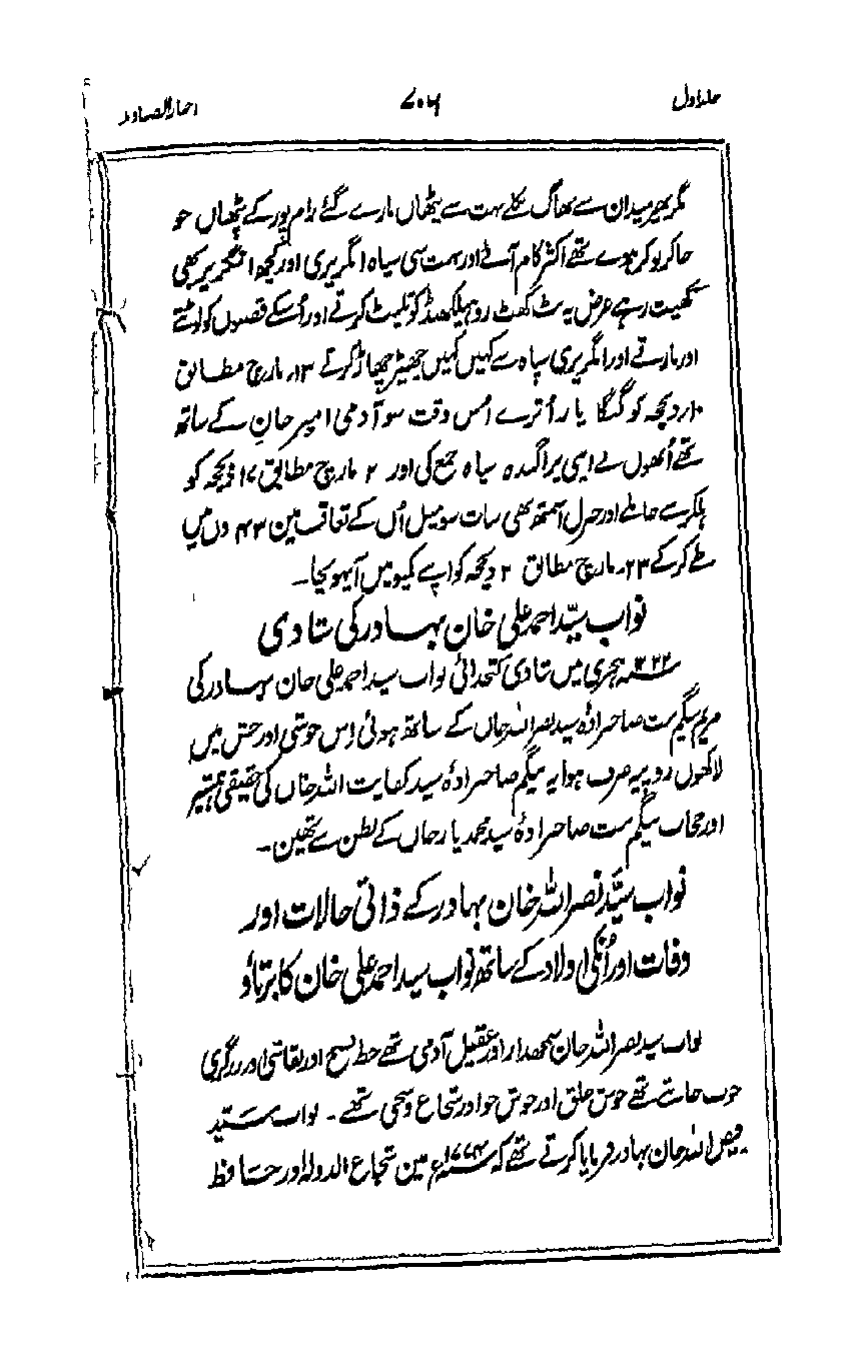 جلد اول ۷۰۵ اخبار الصنادید
مگر پھر میدان سے بھاگ نکلے بہت سے پٹھان مارے گئے رام پور کے پٹھان جو
جا کر نوکر ہوے تھے اکثر کام آئے اور بہت سی سپاہ انگریزی اور کچھ انگریز بھی
کھیت رہے غرض یہ نٹ کھٹ روہیلکھنڈ کو تلپٹ کرتے اور اُسکے قصبوں کو لوٹتے
اور مارتے اور انگریزی سپاہ سے کہیں کہیں چھیڑ چھاڑ کرتے ۱۳۔ مارچ مطابق
۱۰ ذیحجہ کو گنگا پار اُترے اُس وقت سو آدمی امیر خان کے ساتھ
تھے اُنھوں نے اپنی پراگندہ سپاہ جمع کی اور ۲۰ مارچ مطابق ۱۷ ذیحجہ کو
ہلکر سے جا ملے اور جنرل اسمتھ بھی سات سو میل اُن کے تعاقب مین ۴۳ دن میں
طے کر کے ۲۳۔ مارچ مطابق ۲۰ ذیحجہ کو اپنے کمپو میں آ پہونچا۔
نواب سیّد احمد علی خان بہادر کی شادی
۱۲۲۲ ہجری میں شادی کتخدائی نواب سید احمد علی خان بہادر کی
مریم بیگم بنت صاحبزادۂ سید نصر اللہ خاں کے ساتھ ہوئی اِس خوشی اور جشن میں
لاکھوں روپیہ صرف ہوا یہ بیگم صاحبزادۂ سید کفایت اللہ خاں کی حقیقی ہمشیر
اور بیگم بنت صاحبزادۂ سید محمد یار خاں کے بطن سے تھین۔
نواب سیّد نصر اللہ خان بہادر کے ذاتی حالات اور
وفات اور اُنکی اولاد کے ساتھ نواب سید احمد علی خان کا برتاؤ
نواب سید نصر اللہ خان سمجھدار اور عقیل آدمی تھے خط نسخ اور نقاشی اور زرگری
خوب جانتے تھے خوش خلق اور خوش خو اور شجاع و سخی تھے۔ نواب سیّد
فیض اللہ خان بہادر فرمایا کرتے تھے کہ ۱۷۷۴ء مین شجاع الدولہ اور حافظ